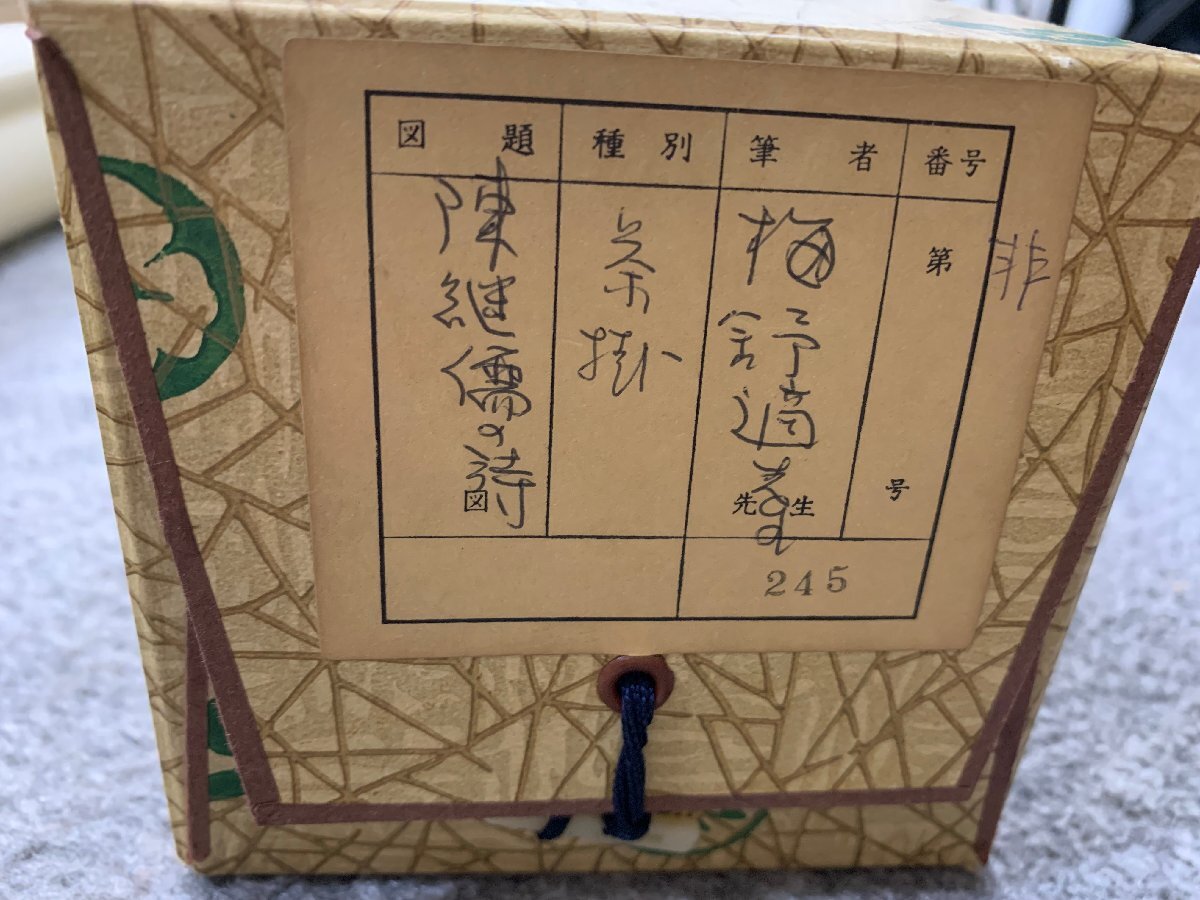 番号
第 号
非
筆者
梅舒適書
先生
種別
茶掛
図題
陳継儒の詩
図
245